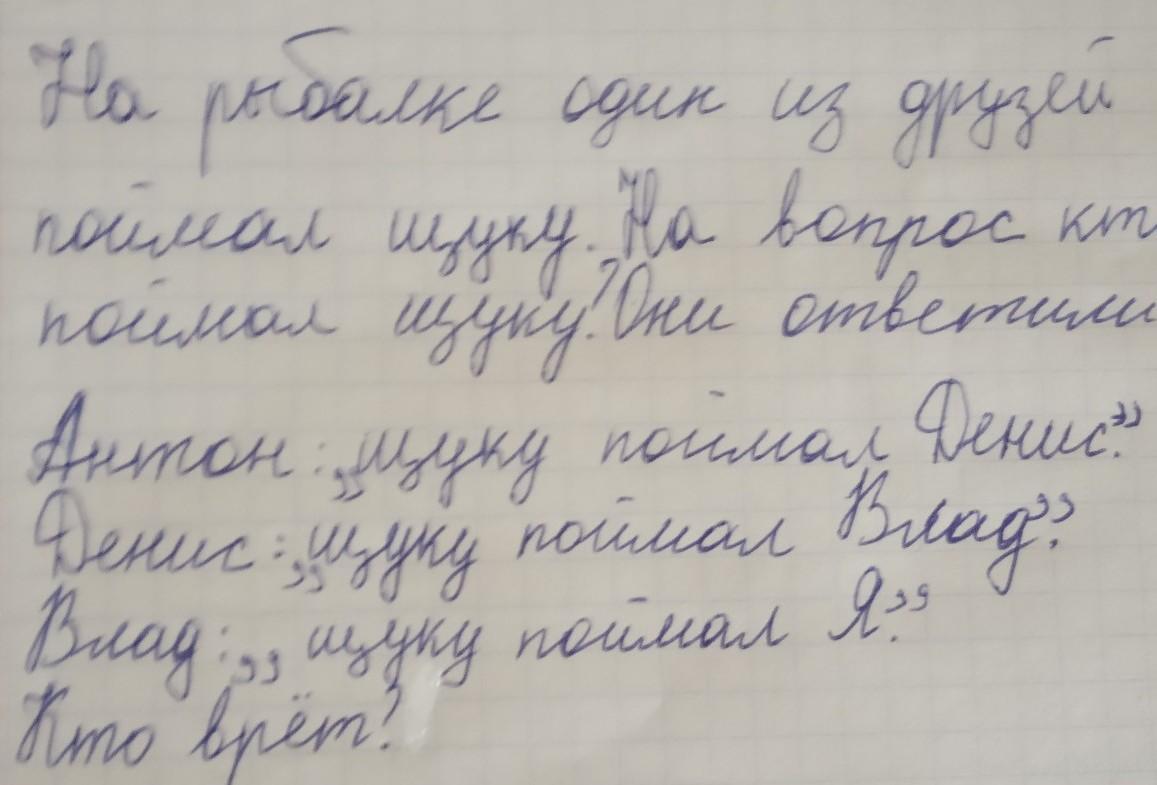 На рыбалке один из друзей
поймал щуку. На вопрос кт
поймал щуку? Они ответили
Антон: „щуку поймал Денис.”
Денис: „щуку поймал Влад”.
Влад: „щуку поймал Я.”
Кто врёт?